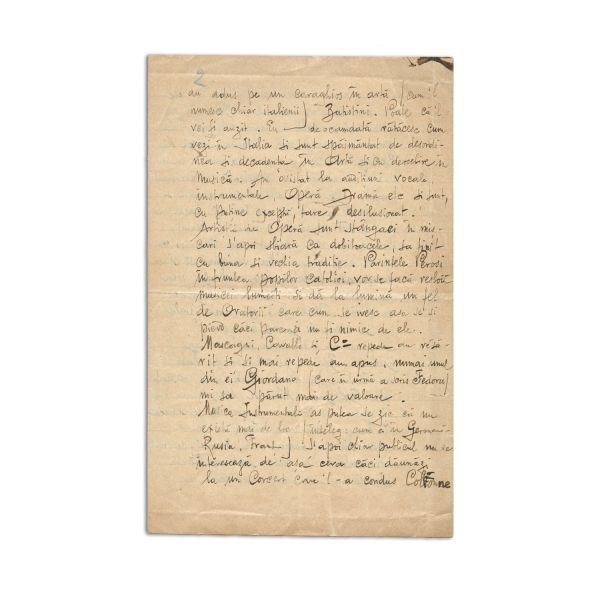 2
au adus pe un caraghios în artă (cum îl
numesc chiar italienii) Batistini. Poate că'l
vei fi auzit. Eu deocamdată rătăcesc cum
vezi în Italia și sunt spăimântat de desordi-
nea și decadența în Artă și cu deosebire în
Musică. Am asistat la audițiuni vocale,
instrumentale, Operă, Dramă etc și sunt,
cu puține excepții, tare desilusionat.
Artiștii de Operă sunt stângaci în miș-
cări s'apoi sbiară ca dobitoacele, sa țipit
cu buna și vechia tradiție. Părintele Perosi
în fruntea popilor catolici, vor să facă resboiu
musicei lumești și dă la lumină un fel
de Oratorii care cum se ivesc așa se și
pierd căci parcă nu-s nimic de ele.
Mascagni, Cavallo și C= repede au răsă-
rit și și mai repede au apus, numai unul
din ei Giordano (care în urmă a scris Fedora)
mi sa părut mai de valoare.
Musica Instrumentală aș putea se zic că nu
există mai de loc (înțeleg: cum e în Germani-
Rusia, Franț) S'apoi chiar publicul nu se
interesează de așa ceva căci dăunăzi
la un Concert care'l-a condus Colonne